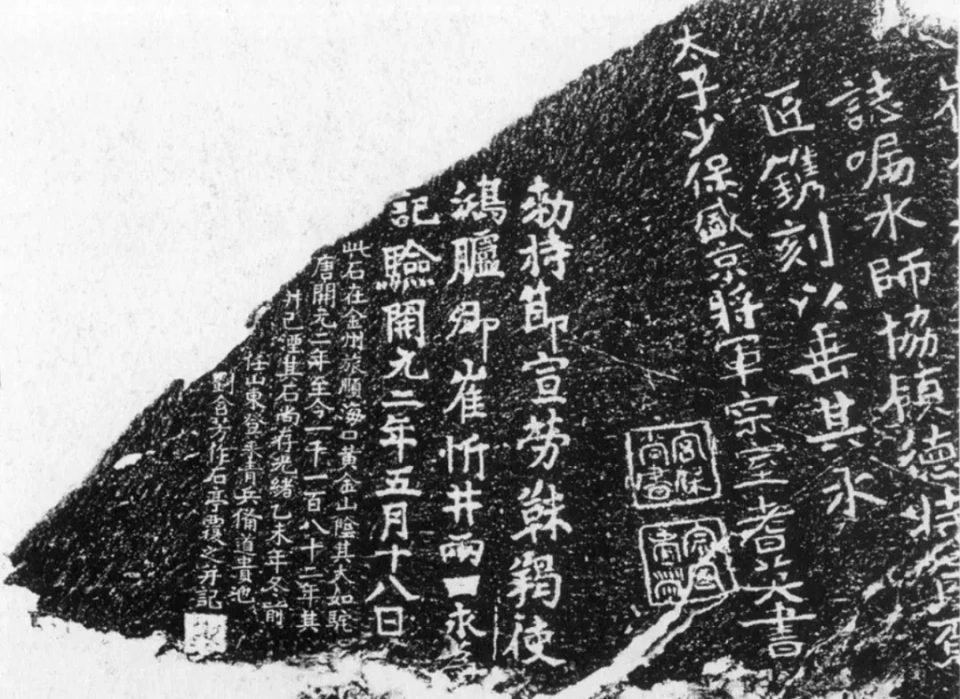 誌嘱水師協鎮德特
匠鐫刻以垂其永
太子少保盛京將軍宗室耆英書
宮保尚書
勅持節宣勞靺羯使
鴻臚卿崔忻井兩口永為
記驗開元二年五月十八日
此石在金州旅順海口黃金山陰其大如駝
唐開元二年至今一千一百八十二年其
井已湮其石尚存光緒乙未年冬前
任山東登萊青兵備道貴池
劉含芳作石亭覆之并記